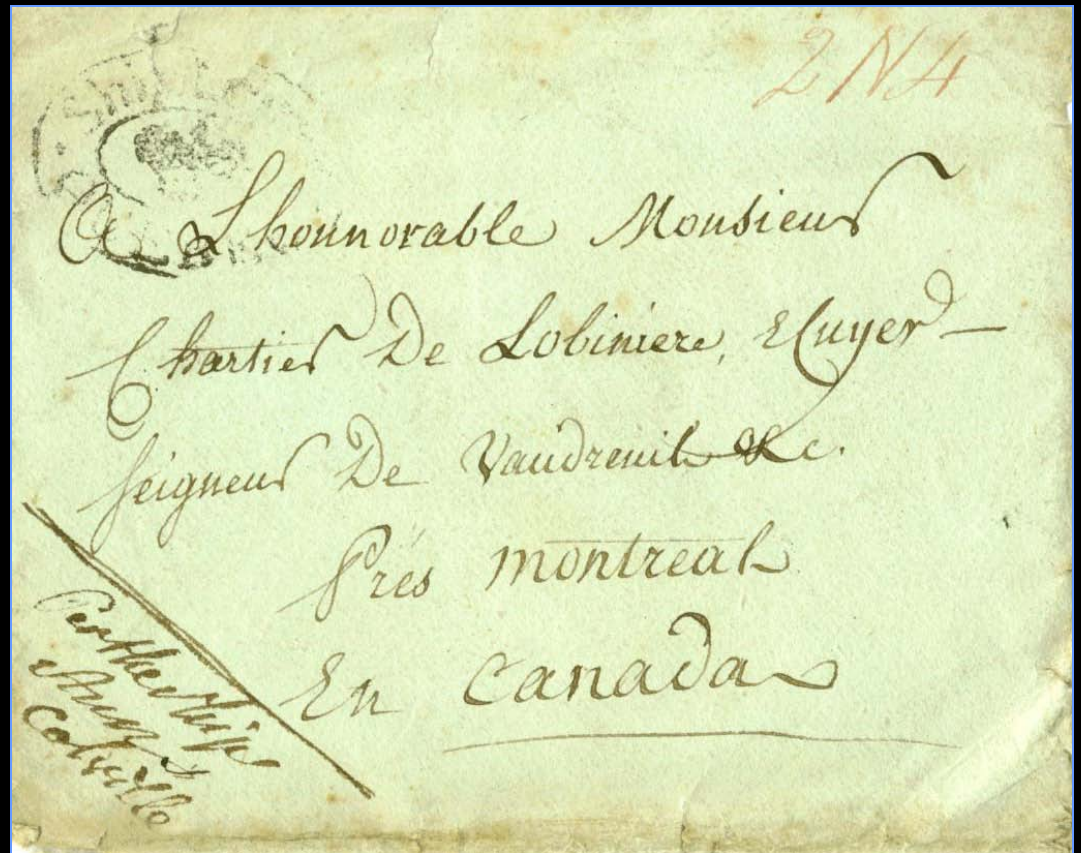 Ship Le
2 N 4
A L'honnorable Monsieur
Chartier De Lobiniere, Ecuyer –
Seigneur De Vaudreuil &c.
Prés Montreal
En Canada
Per the Ship
Colville